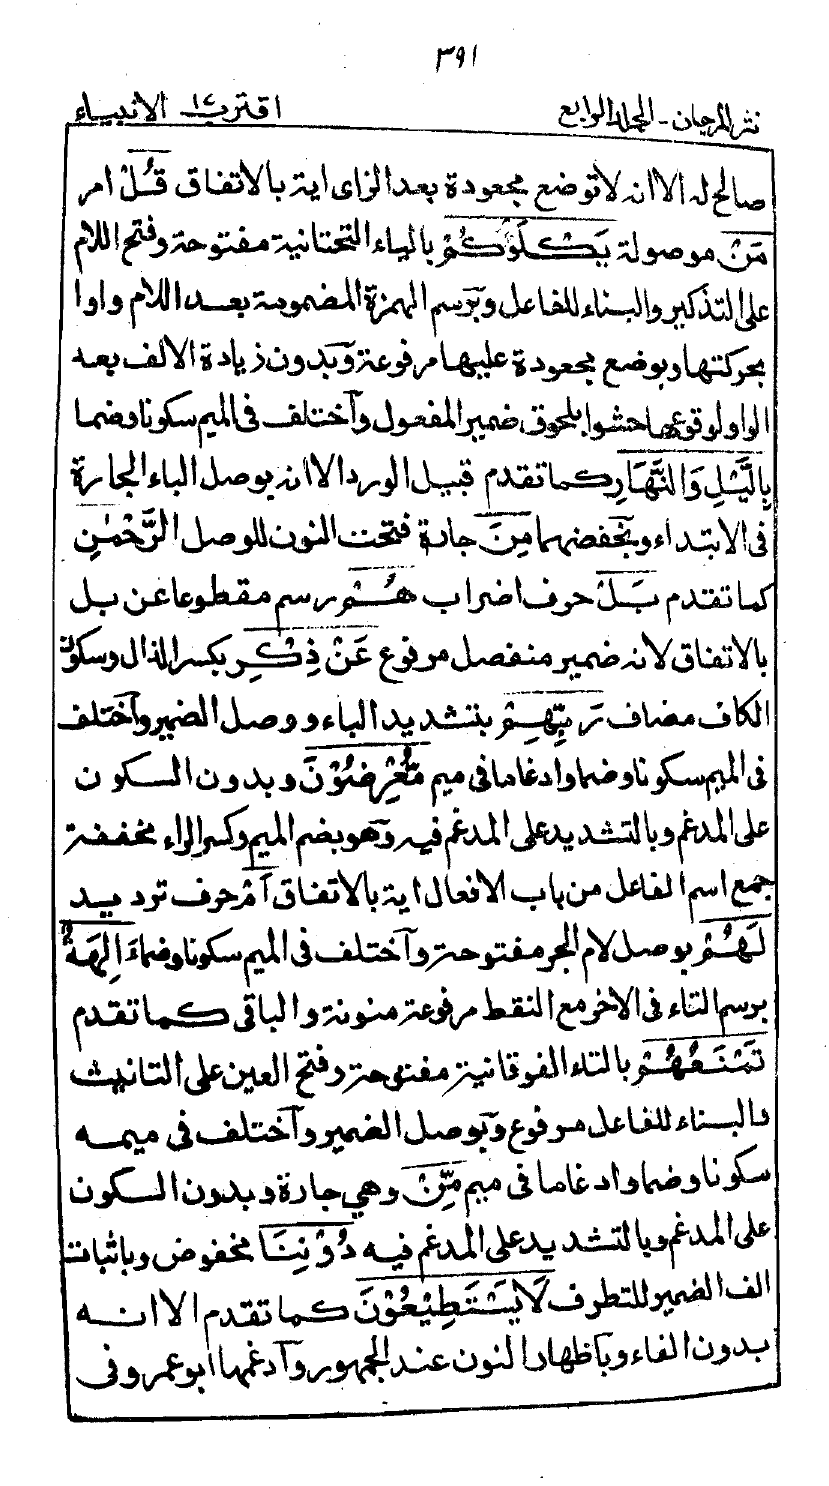 ٣٩١
نثر المرجان - المجلد الرابع
اقترب ١٧ الانبياء
صالح له الا انه لا توضع مجعودة بعد الزاى اية بالاتفاق قُلْ امر
مَنْ موصولة يَكْلَؤُكُمْ بالياء التحتانية مفتوحة وفتح اللام
على التذكير والبناء للفاعل وبرسم الهمزة المضمومة بعد اللام واوا
بحركتها وبوضع مجعودة عليها مرفوعة وبدون زيادة الالف بعد
الواو لوقوعها حشوا بلحوق ضمير المفعول واختلف فى الميم سكونا وضما
بِالَّيْلِ وَالنَّهَارِ كما تقدم قبيل الورد الا انه بوصل الباء الجارة
فى الابتداء وبخفضهما مِنَ جارة فتحت النون للوصل الرَّحْمٰنِ
كما تقدم بَلْ حرف اضراب هُمْ رسم مقطوعا عن بل
بالاتفاق لانه ضمير منفصل مرفوع عَنْ ذِكْرِ بكسر الذال وسكون
الكاف مضاف رَبِّهِمْ بتشديد الباء ووصل الضمير واختلف
فى الميم سكونا وضما وادغاما فى ميم مُّعْرِضُوْنَ وبدون السكون
على المدغم وبالتشديد على المدغم فيه وهو بضم الميم وكسر الراء مخففة
جمع اسم الفاعل من باب الافعال اية بالاتفاق اَمْ حرف ترديد
لَهُمْ بوصل لام الجر مفتوحة واختلف فى الميم سكونا وضما اٰلِهَةٌ
برسم التاء فى الاخر مع النقط مرفوعة منونة والباقى كما تقدم
تَمْنَعُهُمْ بالتاء الفوقانية مفتوحة وفتح العين على التانيث
والبناء للفاعل مرفوع وبوصل الضمير واختلف فى ميمه
سكونا وضما وادغاما فى ميم مِّنْ وهي جارة وبدون السكون
على المدغم وبالتشديد على المدغم فيه دُوْنِنَا مخفوض وباثبات
الف الضمير للتطرف لَا يَسْتَطِيْعُوْنَ كما تقدم الا انه
بدون الفاء وباظهار النون عند الجمهور وادغمها ابو عمرو فى